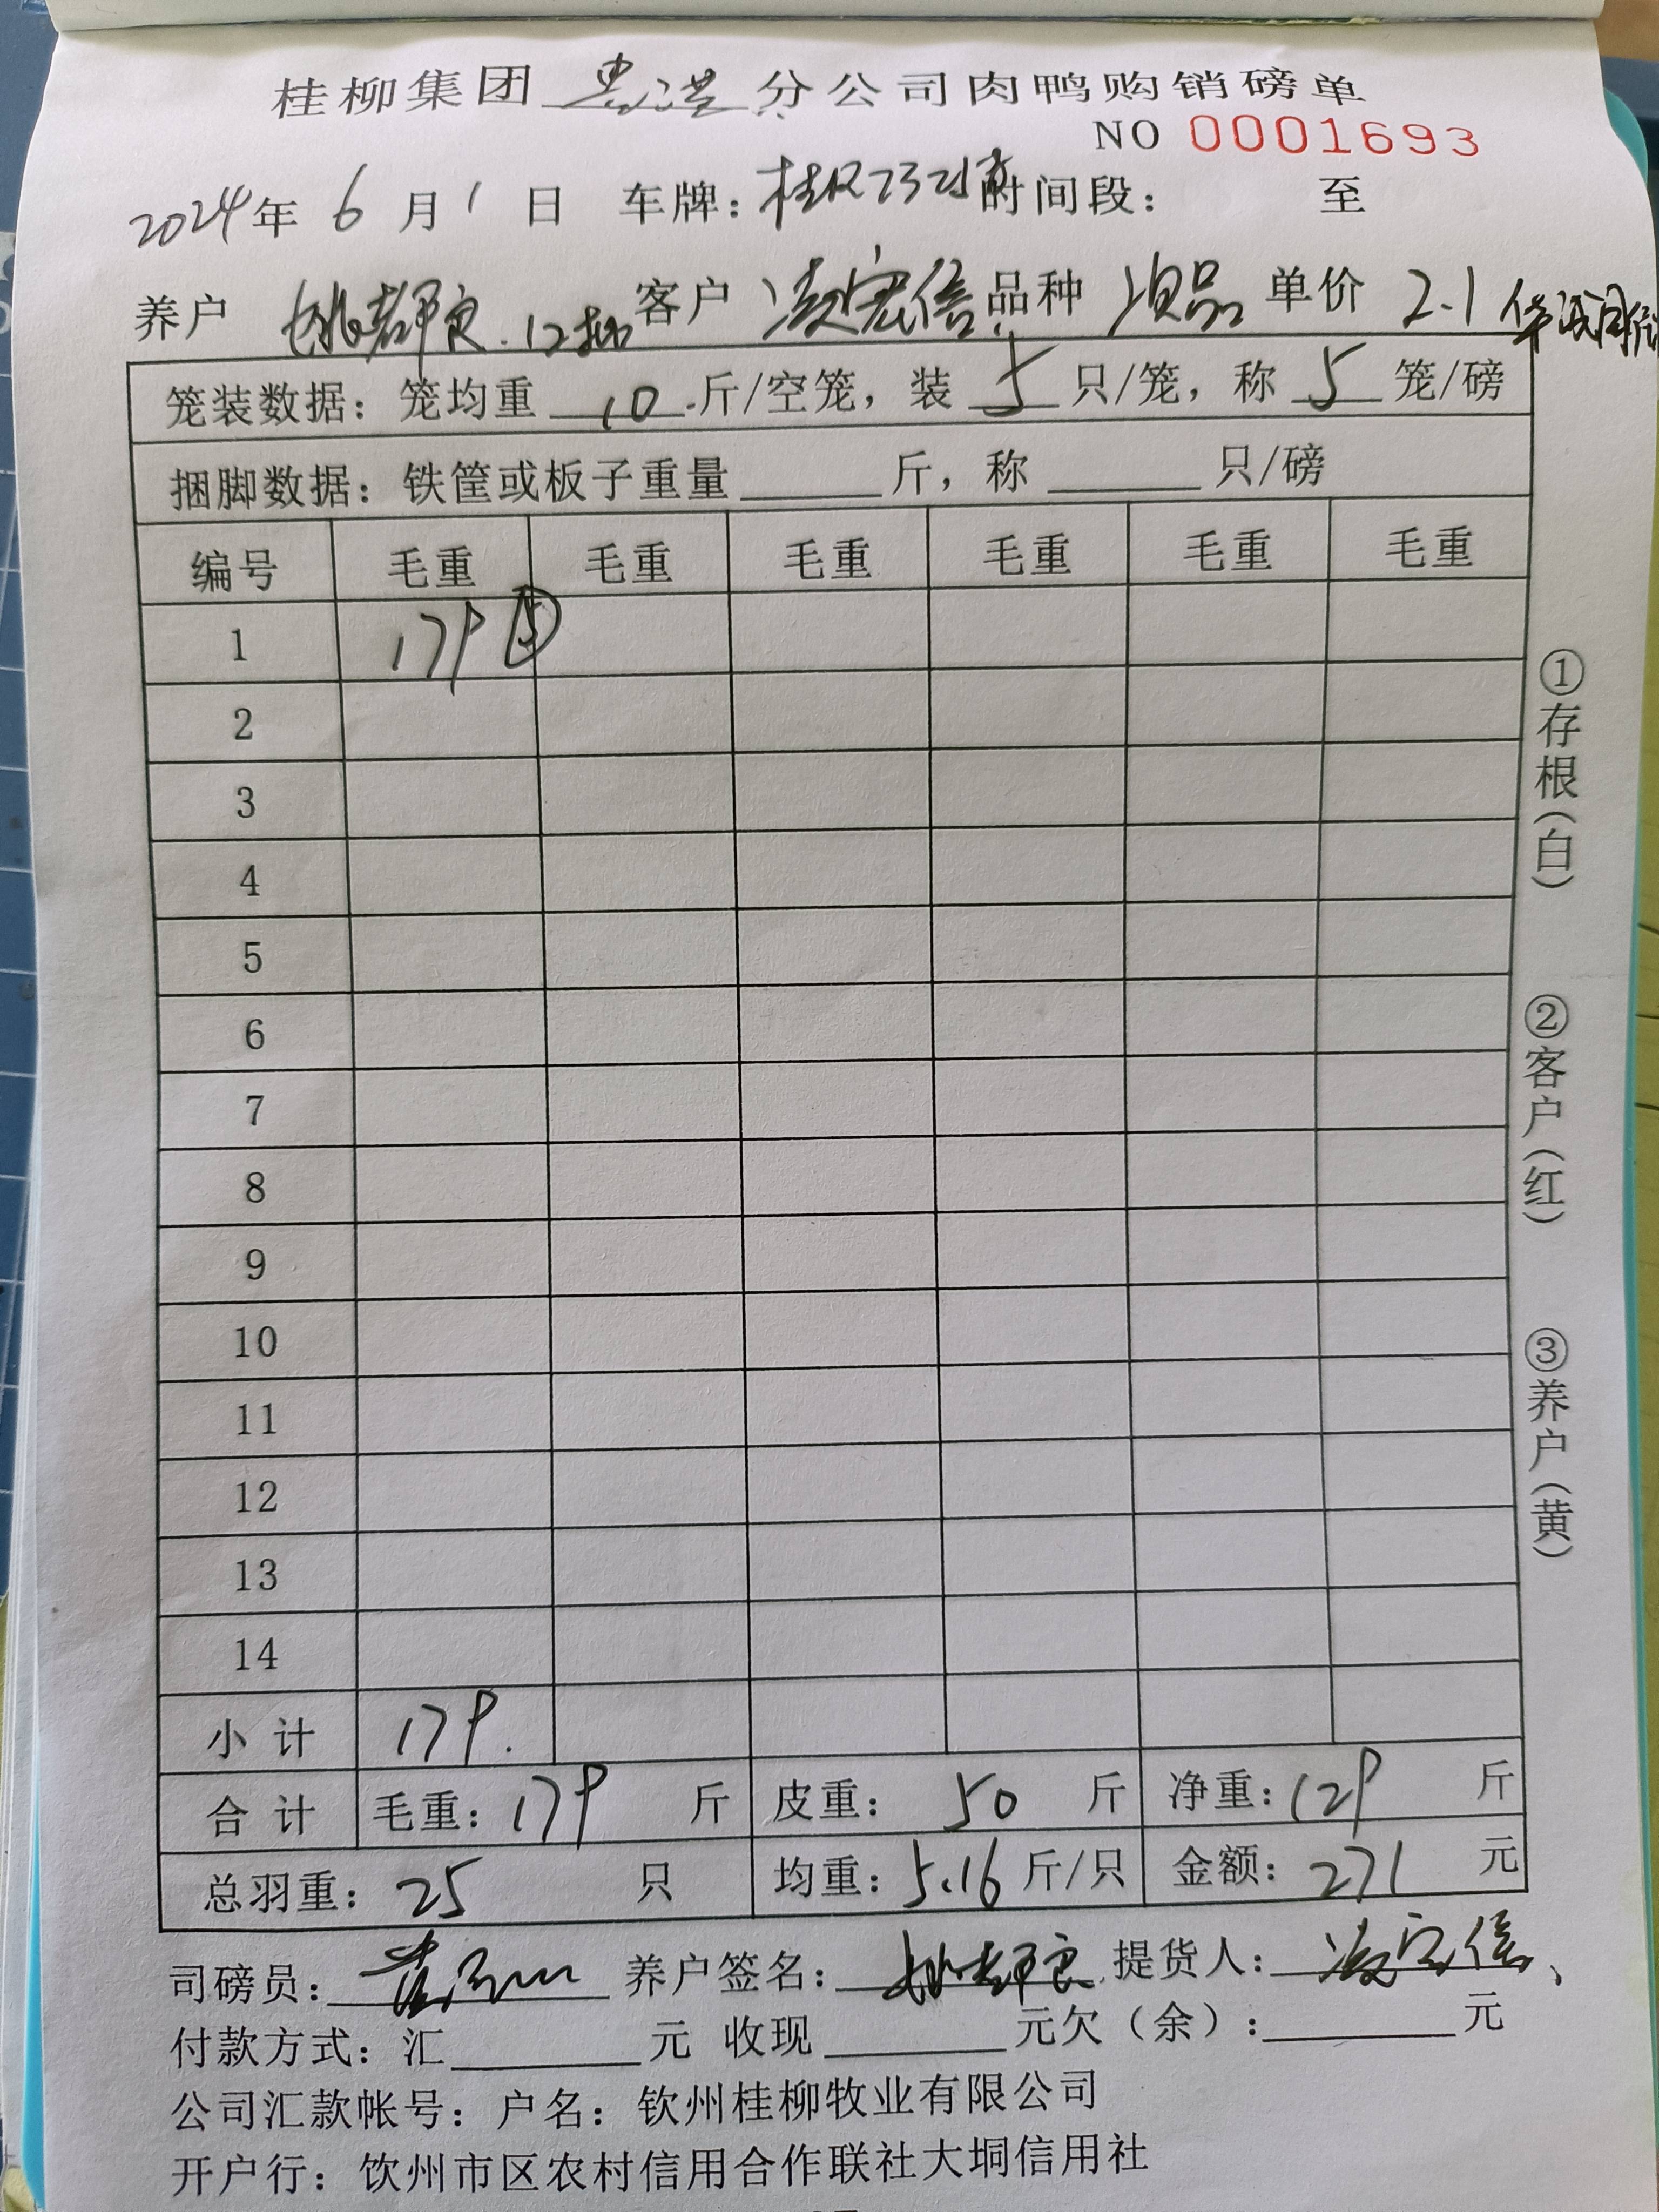 桂柳集团 贵港 分公司肉鸭购销磅单
NO 0001693
2024年 6 月 1 日 车牌: 时间段: 至
养户 姚都良.12批 客户 凌宏信 品种 次品 单价 2.1
笼装数据: 笼均重 10 斤/空笼, 装 5 只/笼, 称 5 笼/磅
捆脚数据: 铁筐或板子重量 斤, 称 只/磅
编号 毛重 毛重 毛重 毛重 毛重 毛重
1 179 ⑤
2
3
4
5
6
7
8
9
10
11
12
13
14
小 计 179.
合 计 毛重: 179 斤 皮重: 50 斤 净重: 129 斤
总羽重: 25 只 均重: 5.16 斤/只 金额: 271 元
①存根(白)
②客户(红)
③养户(黄)
司磅员: 养户签名: 姚都良 提货人: 凌宏信
付款方式: 汇 元 收现 元欠(余): 元
公司汇款帐号: 户名: 钦州桂柳牧业有限公司
开户行: 钦州市区农村信用合作联社大垌信用社